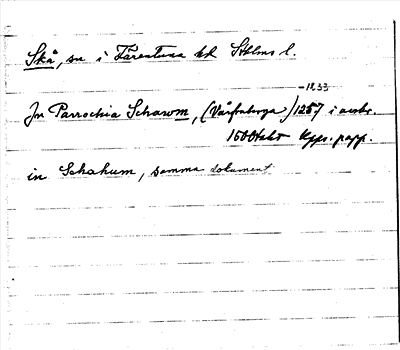 Skå, sn i Färentuna hd Sthlms l.
-18.33
In Parrochia Schawm, (Vårfruberga) 1257 i avskr.
1500talet Kyps. papp.
in Schahum, samma dokument